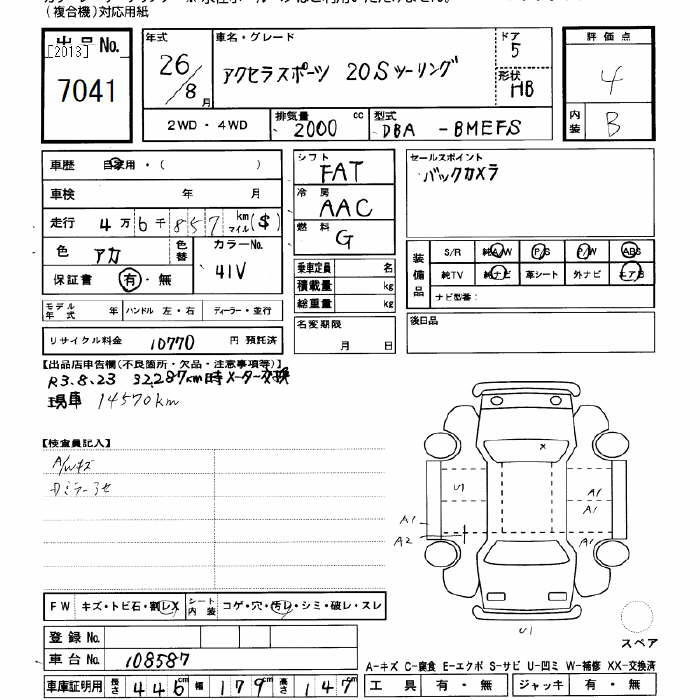 (複合機)対応用紙
出品No.
[2013]
7041
年式
26/8月
車名・グレード
アクセラスポーツ 20Sツーリング
ドア
5
形状
HB
評価点
4
内装
B
2WD・4WD
排気量
2000 cc
型式
DBA-BMEFS
車歴 自家用・( )
車検 年 月
走行 4万6千857 km マイル($)
色 アカ
色替
カラーNo.
41V
保証書 有・無
モデル年式 年
ハンドル 左・右
ディーラー・並行
リサイクル料金 10770 円 預託済
シフト
FAT
冷房
AAC
燃料
G
乗車定員 名
積載量 kg
総重量 kg
名変期限
月 日
セールスポイント
バックカメラ
装備品
S/R 純A/W P/S P/W ABS
純TV 純ナビ 革シート 外ナビ エアB
ナビ型番:
後日品
【出品店申告欄(不良箇所・欠品・注意事項等)】
R3.8.23 32,287km時メーター交換
現車 14570km
【検査員記入】
A/Wキズ
F W キズ・トビ石・割レX
シート内装 コゲ・穴・汚レ・シミ・破レ・スレ
登録No.
車台No. 108587
車庫証明用 長さ 446cm 幅 179cm 高さ 147cm
X
U1
A1
A1
A1
A2
A1
U1
スペア
A-キズ C-腐食 E-エクボ S-サビ U-凹ミ W-補修 XX-交換済
工具 有・無 ジャッキ 有・無